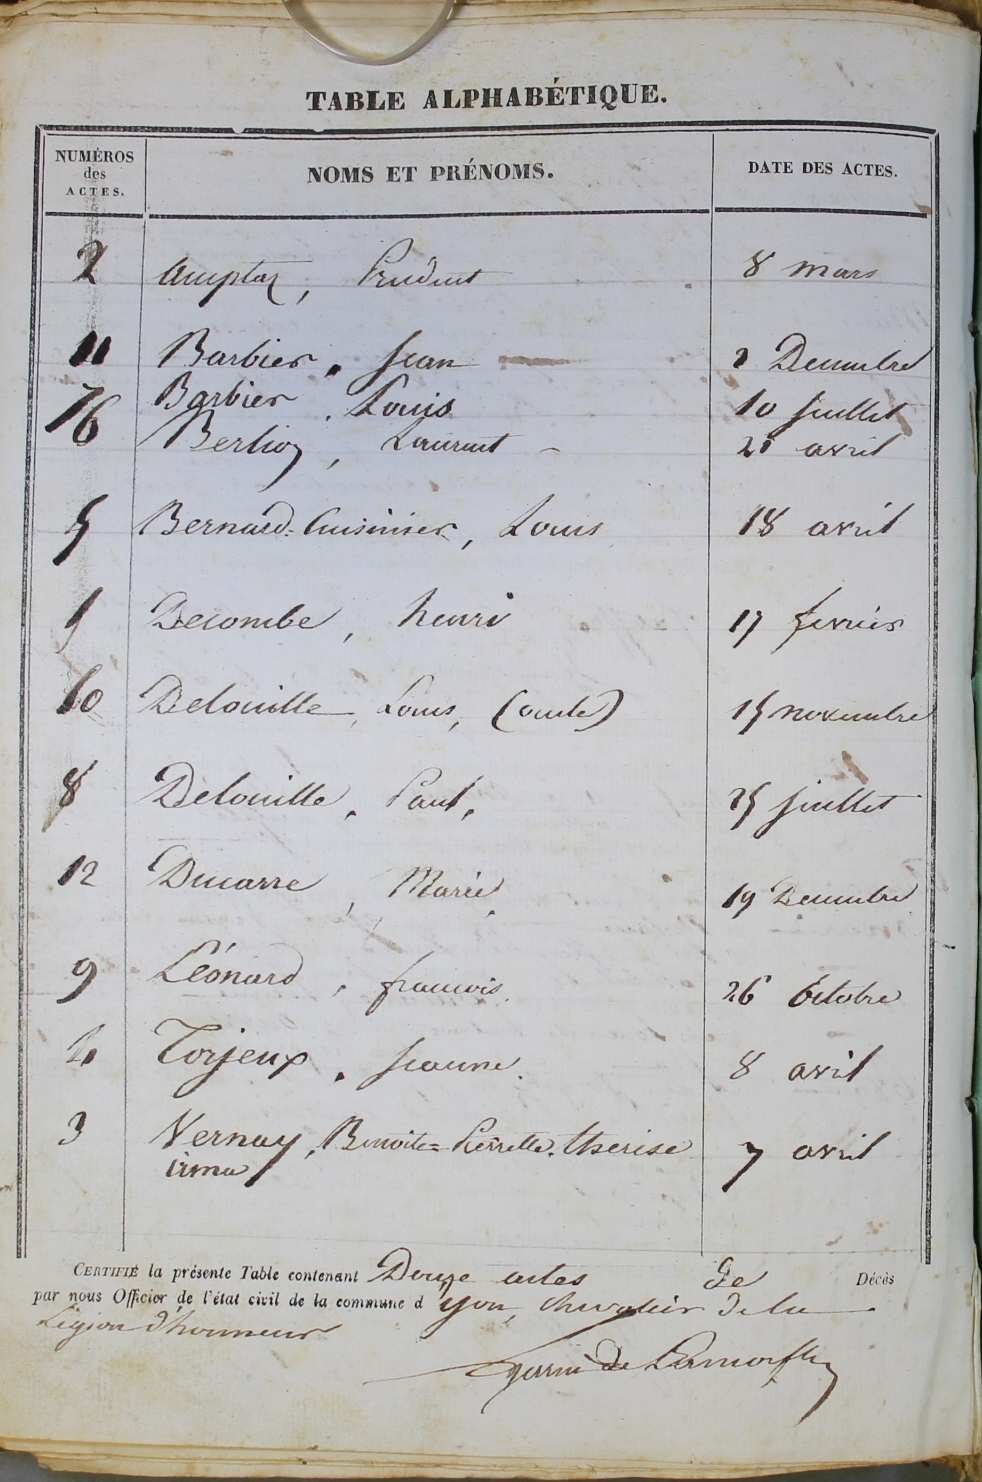 TABLE ALPHABÉTIQUE.
NUMÉROS des ACTES. NOMS ET PRÉNOMS. DATE DES ACTES.
2 Prudent 8 mars
11 Barbier, Jean Decembre
7 Barbier, Louis 10 juillet
6 Berlioz, Laurent avril
5 Bernard=Cuisinier, Louis 18 avril
Decombe, henri 17 fevrier
10 Delouille, Louis, 15 novembre
8 Delouille, Paul, 25 juillet
12 Ducarre, Marie, 19 Decembre
9 Léonard, francois 26 Octobre
4 Torjeux, Jeanne. 8 avril
3 Vernay, Benoite=Pierrette, therese 7 avril
irma
CERTIFIÉ la présente Table contenant Douze actes de Décès
par nous Officier de l'état civil de la commune d'yon, chevalier de la
Légion d'honneur